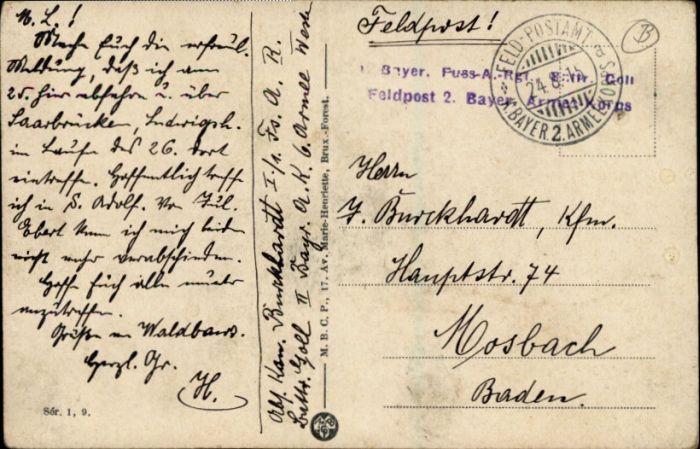 M. L.!
Mache Euch die erfreul.
Meldung, daß ich am
25. hier abfahre u. über
Saarbrücken, Ludwigsh.
im Laufe des 26. dort
eintreffe. Hoffentlich treffe
ich in S. Adolf. Von Jul.
Ebert kann ich mich leider
nicht mehr verabschieden.
Hoffe Euch alle munter
anzutreffen.
Grüße an Waldbaur.
Herzl. Gr.
H.
Sér. 1, 9.
Abs. Kan. Burckhardt I./1. Fs. A. R.
Battr. Goll II Bayr. A. K. 6. Armee Westen
M. B. C. P., 17. Av. Marie-Henriette, Brux.-Forest.
Feldpost!
Bayer. Fuss-A.-Rgt. Battr. Goll
Feldpost 2. Bayer. Armee Korps
FELD-POSTAMT
24. 8. 15
BAYER. 2. ARMEEKORPS
B
Herrn
J. Burckhardt, Kfm.
Hauptstr. 74
Mosbach
Baden.